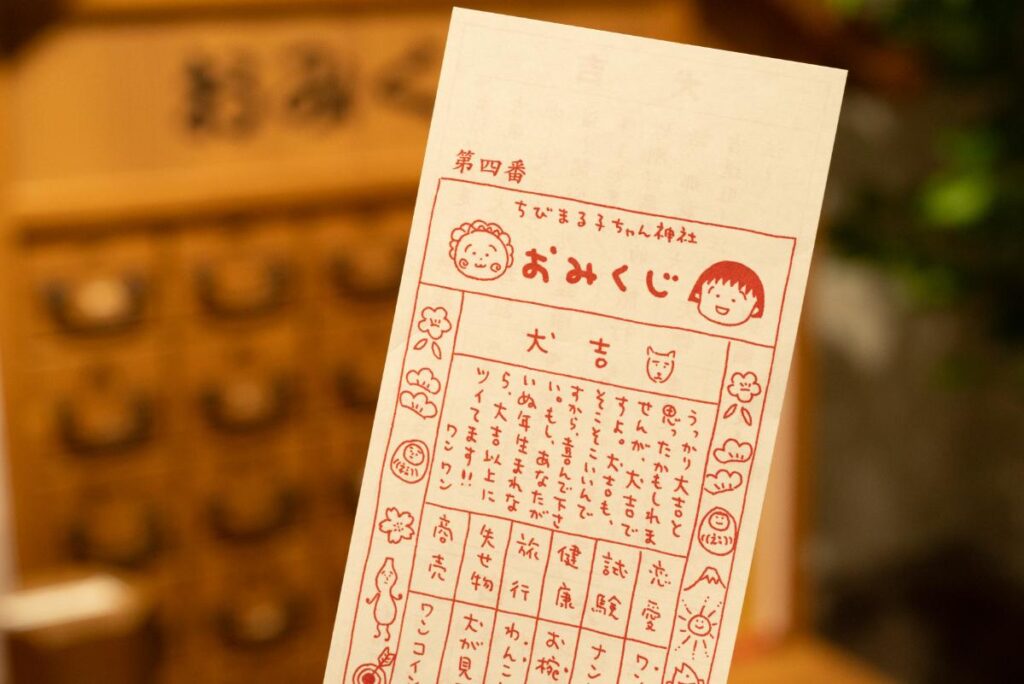 おみく
第四番
ちびまる子ちゃん神社
おみくじ
犬吉
うっかり大吉と
思ったかもしれま
せんが、犬吉で
すよ。犬吉も、
そこそこいいんで
すから、喜んで下さ
い。もし、あなたが
いぬ年生まれな
ら、大吉以上に
ツイてます!!
ワンワン
恋愛
ワン
試験
ナン
健康
お椀
旅行
わんこ
失せ物
犬が見
商売
ワンコイン